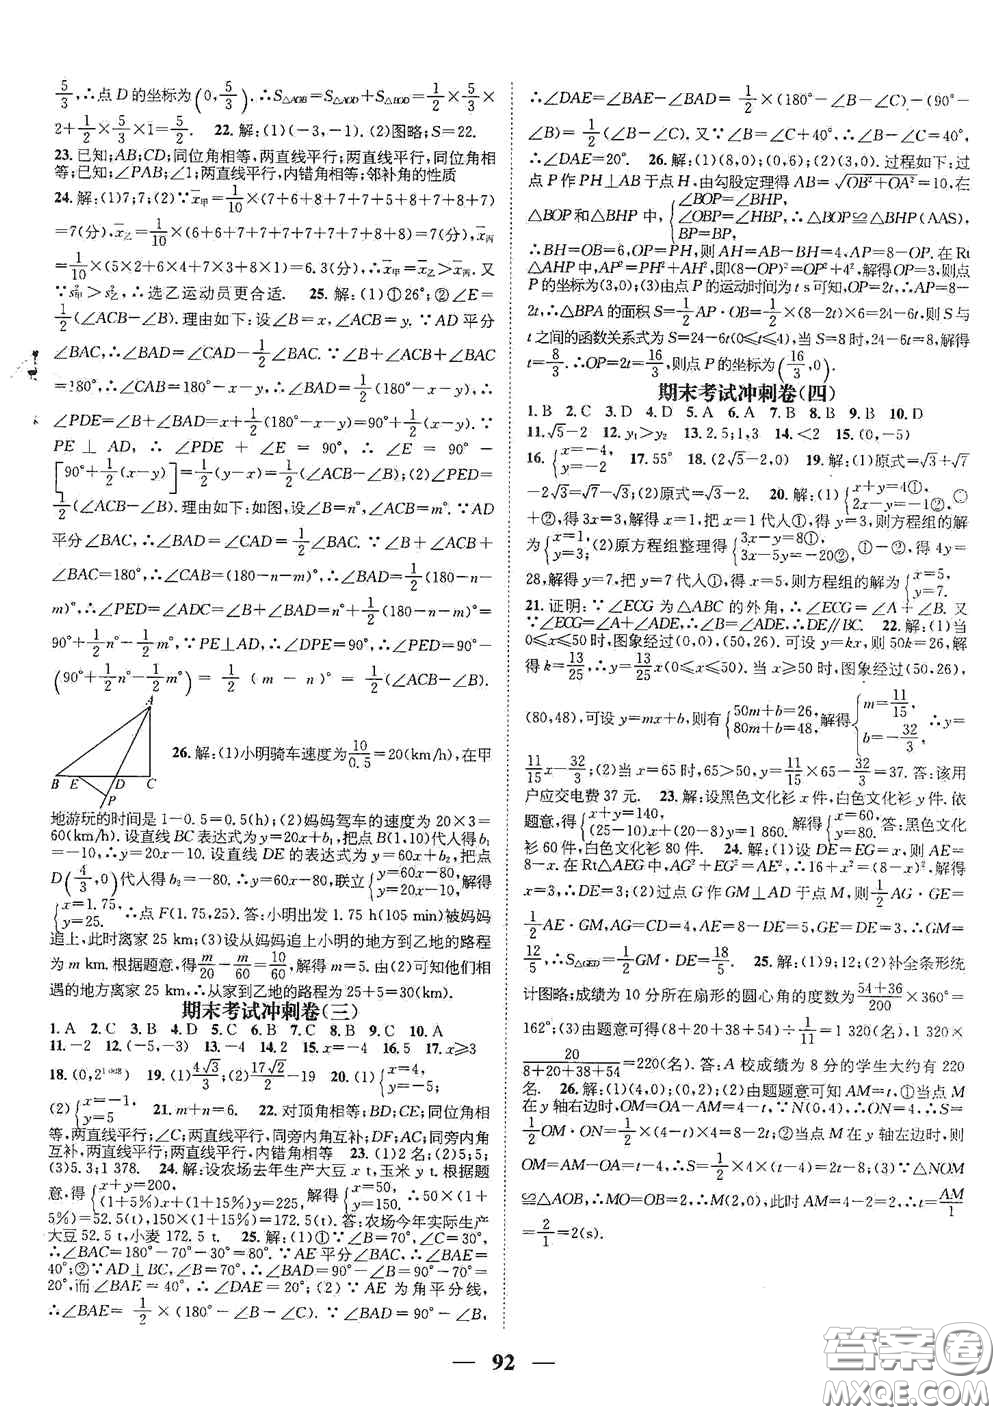 5/3,∴点 D 的坐标为(0,5/3).∴S△AOB=S△AOD+S△BOD=1/2×5/3×
2+1/2×5/3×1=5/2.  22.解:(1)(-3,-1).(2)图略;S=22.
23.已知;AB;CD;同位角相等,两直线平行;两直线平行,同位角相
等;已知;∠PAB;∠1;两直线平行,内错角相等;邻补角的性质
24.解:(1)7;7;(2)∵x̄甲=1/10×(7+6+8+7+7+5+8+7+8+7)
=7(分),x̄乙=1/10×(6+6+7+7+7+7+7+7+8+8)=7(分),x̄丙
=1/10×(5×2+6×4+7×3+8×1)=6.3(分),∴x̄甲=x̄乙>x̄丙,又
∵s²甲>s²乙,∴选乙运动员更合适.  25.解:(1)①26°;②∠E=
1/2(∠ACB-∠B).理由如下:设∠B=x,∠ACB=y.∵AD 平分
∠BAC,∴∠BAD=∠CAD=1/2∠BAC.∵∠B+∠ACB+∠BAC
=180°,∴∠CAB=180°-x-y,∴∠BAD=1/2(180°-x-y),∴
∠PDE=∠B+∠BAD=x+1/2(180°-x-y)=90°+1/2(x-y).∵
PE⊥AD,∴∠PDE+∠E=90°,∴∠E=90°-
[90°+1/2(x-y)]=1/2(y-x)=1/2(∠ACB-∠B);(2)∠PED=
1/2(∠ACB-∠B).理由如下:如图,设∠B=n°,∠ACB=m°.∵AD
平分∠BAC,∴∠BAD=∠CAD=1/2∠BAC.∵∠B+∠ACB+
∠BAC=180°,∴∠CAB=(180-n-m)°,∴∠BAD=1/2(180-n-
m)°,∴∠PED=∠ADC=∠B+∠BAD=n°+1/2(180-n-m)°
=90°+1/2n°-1/2m°.∵PE⊥AD,∴∠DPE=90°,∴∠PED=90°-
(90°+1/2n°-1/2m°)=1/2(m-n)°=1/2(∠ACB-∠B).
A
B E D C
P
26.解:(1)小明骑车速度为10/0.5=20(km/h),在甲
地游玩的时间是 1-0.5=0.5(h);(2)妈妈驾车的速度为 20×3=
60(km/h).设直线 BC 表达式为 y=20x+b₁,把点 B(1,10)代人得 b₁
=-10.∴y=20x-10.设直线 DE 的表达式为 y=60x+b₂,把点
D(4/3,0)代人得 b₂=-80.∴y=60x-80,联立{y=60x-80, y=20x-10, 解得
{x=1.75, y=25. ∴点 F(1.75,25).答:小明出发 1.75 h(105 min)被妈妈
追上,此时离家 25 km;(3)设从妈妈追上小明的地方到乙地的路程
为 m km.根据题意,得 m/20-m/60=10/60,解得 m=5.由(2)可知他们相
遇的地方离家 25 km,∴从家到乙地的路程为 25+5=30(km).
期末考试冲刺卷(三)
1.A  2.C  3.B  4.D  5.C  6.B  7.C  8.B  9.C  10.A
11.-2  12.(-5,-3)  13.-4  14.2  15.x=-4  16.5  17.x≥3
18.  19.(1)4√3/3;(2)17√2/2-19  20.(1){x=4, y=-5;
(2){x=-1, y=5  21.m+n=6.  22.对顶角相等;BD;CE;同位角相
等,两直线平行;∠C;两直线平行,同旁内角互补;DF;AC;同旁内角
互补,两直线平行;两直线平行,内错角相等  23.(1)2名;(2)5;5;
(3)5.3;1 378.  24.解:设农场去年生产大豆 x t,玉米 y t.根据题
意,得{x+y=200, (1+5%)x+(1+15%)y=225, 解得{x=50, y=150. ∴50×(1+
5%)=52.5(t),150×(1+15%)=172.5(t).答:农场今年实际生产
大豆 52.5 t,小麦 172.5 t.  25.解:(1)①∵∠B=70°,∠C=30°,
∴∠BAC=180°-70°-30°=80°.∵AE 平分∠BAC,∴∠BAE=
40°;②∵AD⊥BC,∠B=70°,∴∠BAD=90°-∠B=90°-70°=
20°,而∠BAE=40°,∴∠DAE=20°;(2)∵AE 为角平分线,
∴∠BAE=1/2×(180°-∠B-∠C).∵∠BAD=90°-∠B,
∴∠DAE=∠BAE-∠BAD=1/2×(180°-∠B-∠C)-(90°-
∠B)=1/2(∠B-∠C).又∵∠B=∠C+40°,∴∠B-∠C=40°,
∴∠DAE=20°.  26.解:(1)(8,0);(0,6);(2)(3,0).过程如下:过
点 P 作 PH⊥AB 于点 H,由勾股定理得 AB=√(OB²+OA²)=10,在
△BOP 和△BHP 中,{∠BOP=∠BHP, ∠OBP=∠HBP, BP=BP, ∴△BOP≌△BHP(AAS),
∴BH=OB=6,OP=PH,则 AH=AB-BH=4,AP=8-OP.在 Rt
△AHP 中,AP²=PH²+AH²,即(8-OP)²=OP²+4²,解得OP=3,则点
P 的坐标为(3,0);(3)由点 P 的运动时间为 t s 可知,OP=2t,∴AP=8-
2t,∴△BPA 的面积 S=1/2AP·OB=1/2×(8-2t)×6=24-6t,则 S 与
t 之间的函数关系式为 S=24-6t(0≤t≤4),当 S=8 时,24-6t=8,解得
t=8/3.∴OP=2t=16/3,则点 P 的坐标为(16/3,0).
期末考试冲刺卷(四)
1.B  2.C  3.D  4.D  5.A  6.A  7.B  8.B  9.B  10.D
11.√5-2  12.y₁>y₂  13.2.5;1,3  14.<2  15.(0,-5)
16.{x=-4, y=-2  17.55°  18.(2√5-2,0)  19.解:(1)原式=√3+√7
-2√3=√7-√3;(2)原式=√3-2.  20.解:(1){x+y=4①, 2x-y=-1②, ①
+②,得 3x=3,解得 x=1,把 x=1 代人①,得 y=3,则方程组的解
为{x=1, y=3;(2)原方程组整理得{3x-y=8①, 3x-5y=-20②, ①-②,得 4y=
28,解得 y=7,把 y=7 代人①,得 x=5,则方程组的解为{x=5, y=7.
21.证明:∵∠ECG 为△ABC 的外角,∴∠ECG=∠A+∠B.又
∵∠ECG=∠A+∠ADE,∴∠B=∠ADE.∴DE∥BC.  22.解:(1)当
0≤x≤50 时,图象经过(0,0),(50,26).可设 y=kx,则 50k=26,解
得 k=13/25,∴y=13/25x(0≤x≤50).当 x≥50 时,图象经过(50,26),
(80,48),可设 y=mx+b,则有{50m+b=26, 80m+b=48, 解得{m=11/15, b=-32/3, ∴y=
11/15x-32/3;(2)当 x=65 时,65>50,∴y=11/15×65-32/3=37.答:该用
户应交电费 37 元.  23.解:设黑色文化衫 x 件,白色文化衫 y 件.依
题意,得{x+y=140, (25-10)x+(20-8)y=1 860. 解得{x=60, y=80. 答:黑色文化
衫 60 件,白色文化衫 80 件.  24.解:(1)设 DE=EG=x,则 AE=
8-x.在 Rt△AEG 中,AG²+EG²=AE²,∴16+x²=(8-x)²,解得
x=3,∴DE=3;(2)过点 G 作 GM⊥AD 于点 M,则1/2AG·GE=
1/2AE·GM,AG=CD=4,AE=8-DE=5,GE=DE=3,∴GM=
12/5,∴S△GED=1/2GM·DE=18/5.  25.解:(1)9;12;(2)补全条形统
计图略;成绩为 10 分所在扇形的圆心角的度数为(54+36)/200×360°=
162°;(3)由题意可得(8+20+38+54)÷1/11=1 320(名),1 320×
20/(8+20+38+54)=220(名).答:A 校成绩为 8 分的学生大约有 220
名.  26.解:(1)(4,0);(0,2);(2)由题题意可知 AM=t,①当点 M
在 y 轴右边时,OM=OA-AM=4-t,∵N(0,4),∴ON=4,∴S=
1/2OM·ON=1/2×(4-t)×4=8-2t;②当点 M 在 y 轴左边时,则
OM=AM-OA=t-4,∴S=1/2×4×(t-4)=2t-8;(3)∵△NOM
≌△AOB,∴MO=OB=2,∴M(2,0),此时 AM=4-2=2,∴t=AM/1
=2/1=2(s).
— 92 —
答案圈
MXQE.COM